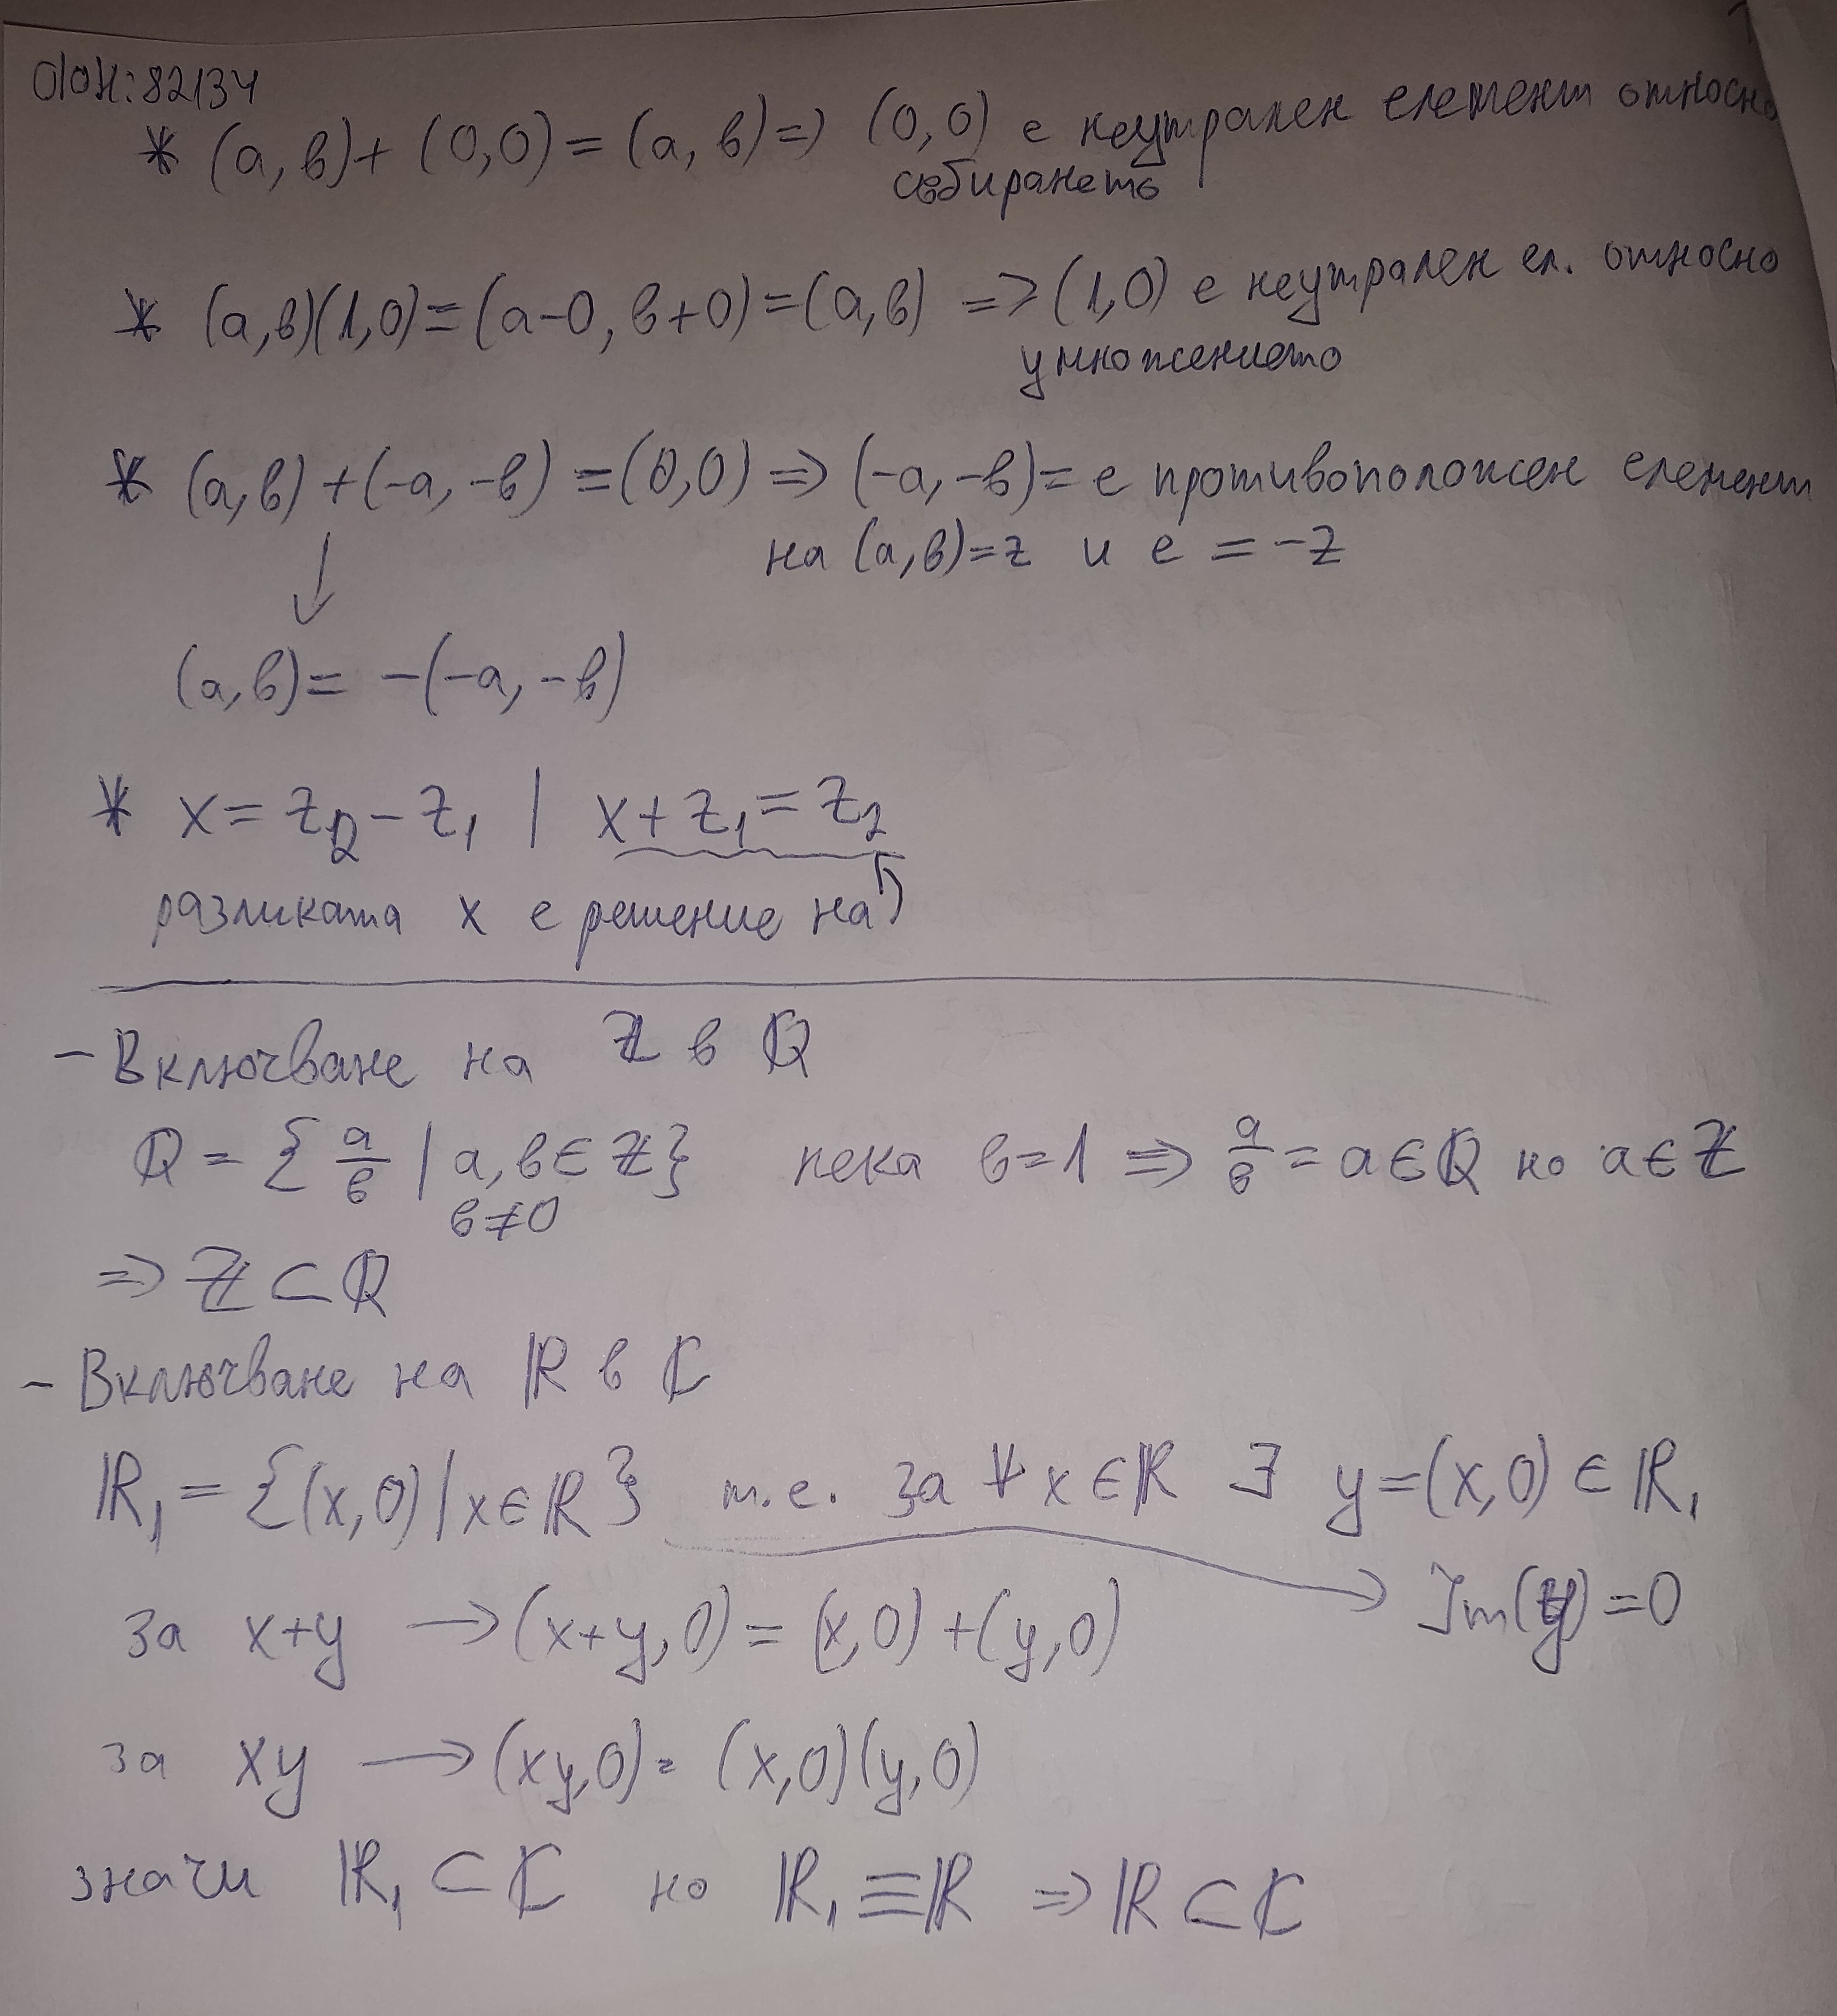 ФН: 82134
* (a, b) + (0,0) = (a, b) => (0,0) е неутрален елемент относно
събирането
* (a,b)(1,0) = (a-0, b+0) = (a,b) => (1,0) е неутрален ел. относно
умножението
* (a,b) + (-a,-b) = (0,0) => (-a,-b) = е противоположен елемент
на (a,b)=z и е = -z
↓
(a,b) = -(-a,-b)
* x = z₂ - z₁ | x + z₁ = z₂
разликата x е решение на
- Включване на ℤ в ℚ
ℚ = { a/b | a, b ∈ ℤ } нека b=1 => a/b = a ∈ ℚ но a ∈ ℤ
b≠0
=> ℤ ⊂ ℚ
- Включване на ℝ в ℂ
ℝ₁ = {(x,0) | x ∈ ℝ} т.е. за ∀ x ∈ ℝ ∃ y = (x,0) ∈ ℝ₁
→ Im(y) = 0
за x+y → (x+y, 0) = (x,0) + (y,0)
за xy → (xy,0) = (x,0)(y,0)
значи ℝ₁ ⊂ ℂ но ℝ₁ ≡ ℝ => ℝ ⊂ ℂ